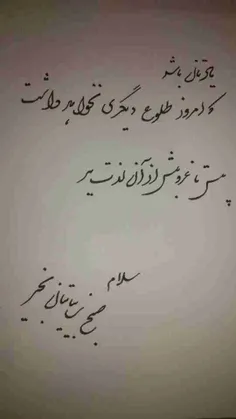 یادتان باشد
که امروز طلوع دیگری نخواهد داشت
پس تا غروبش از آن لذت ببر
سلام
صبح زیباتان بخیر